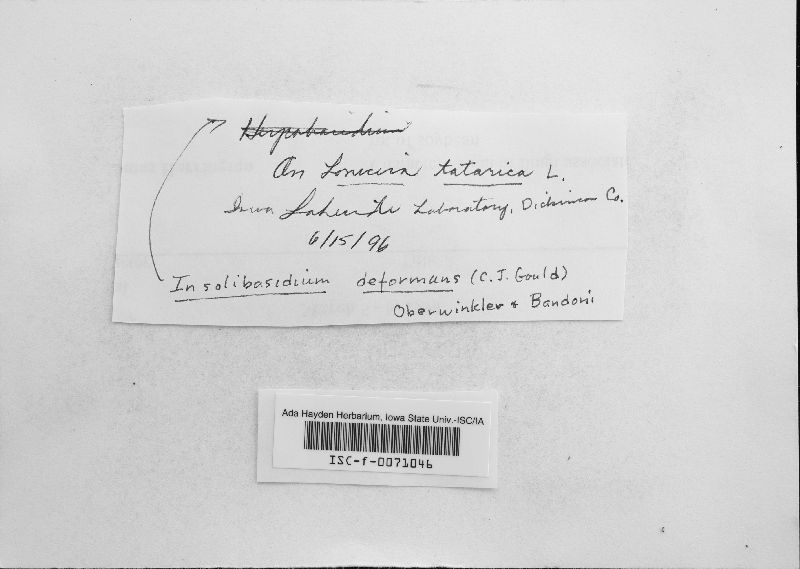 Herpobasidium
On Lonicera tatarica L.
Iowa Lakeside Laboratory, Dickinson Co.
6/15/96
Insolibasidium deformans (C.J. Gould)
Oberwinkler & Bandoni
Ada Hayden Herbarium, Iowa State Univ.-ISC/IA
ISC-f-0071046